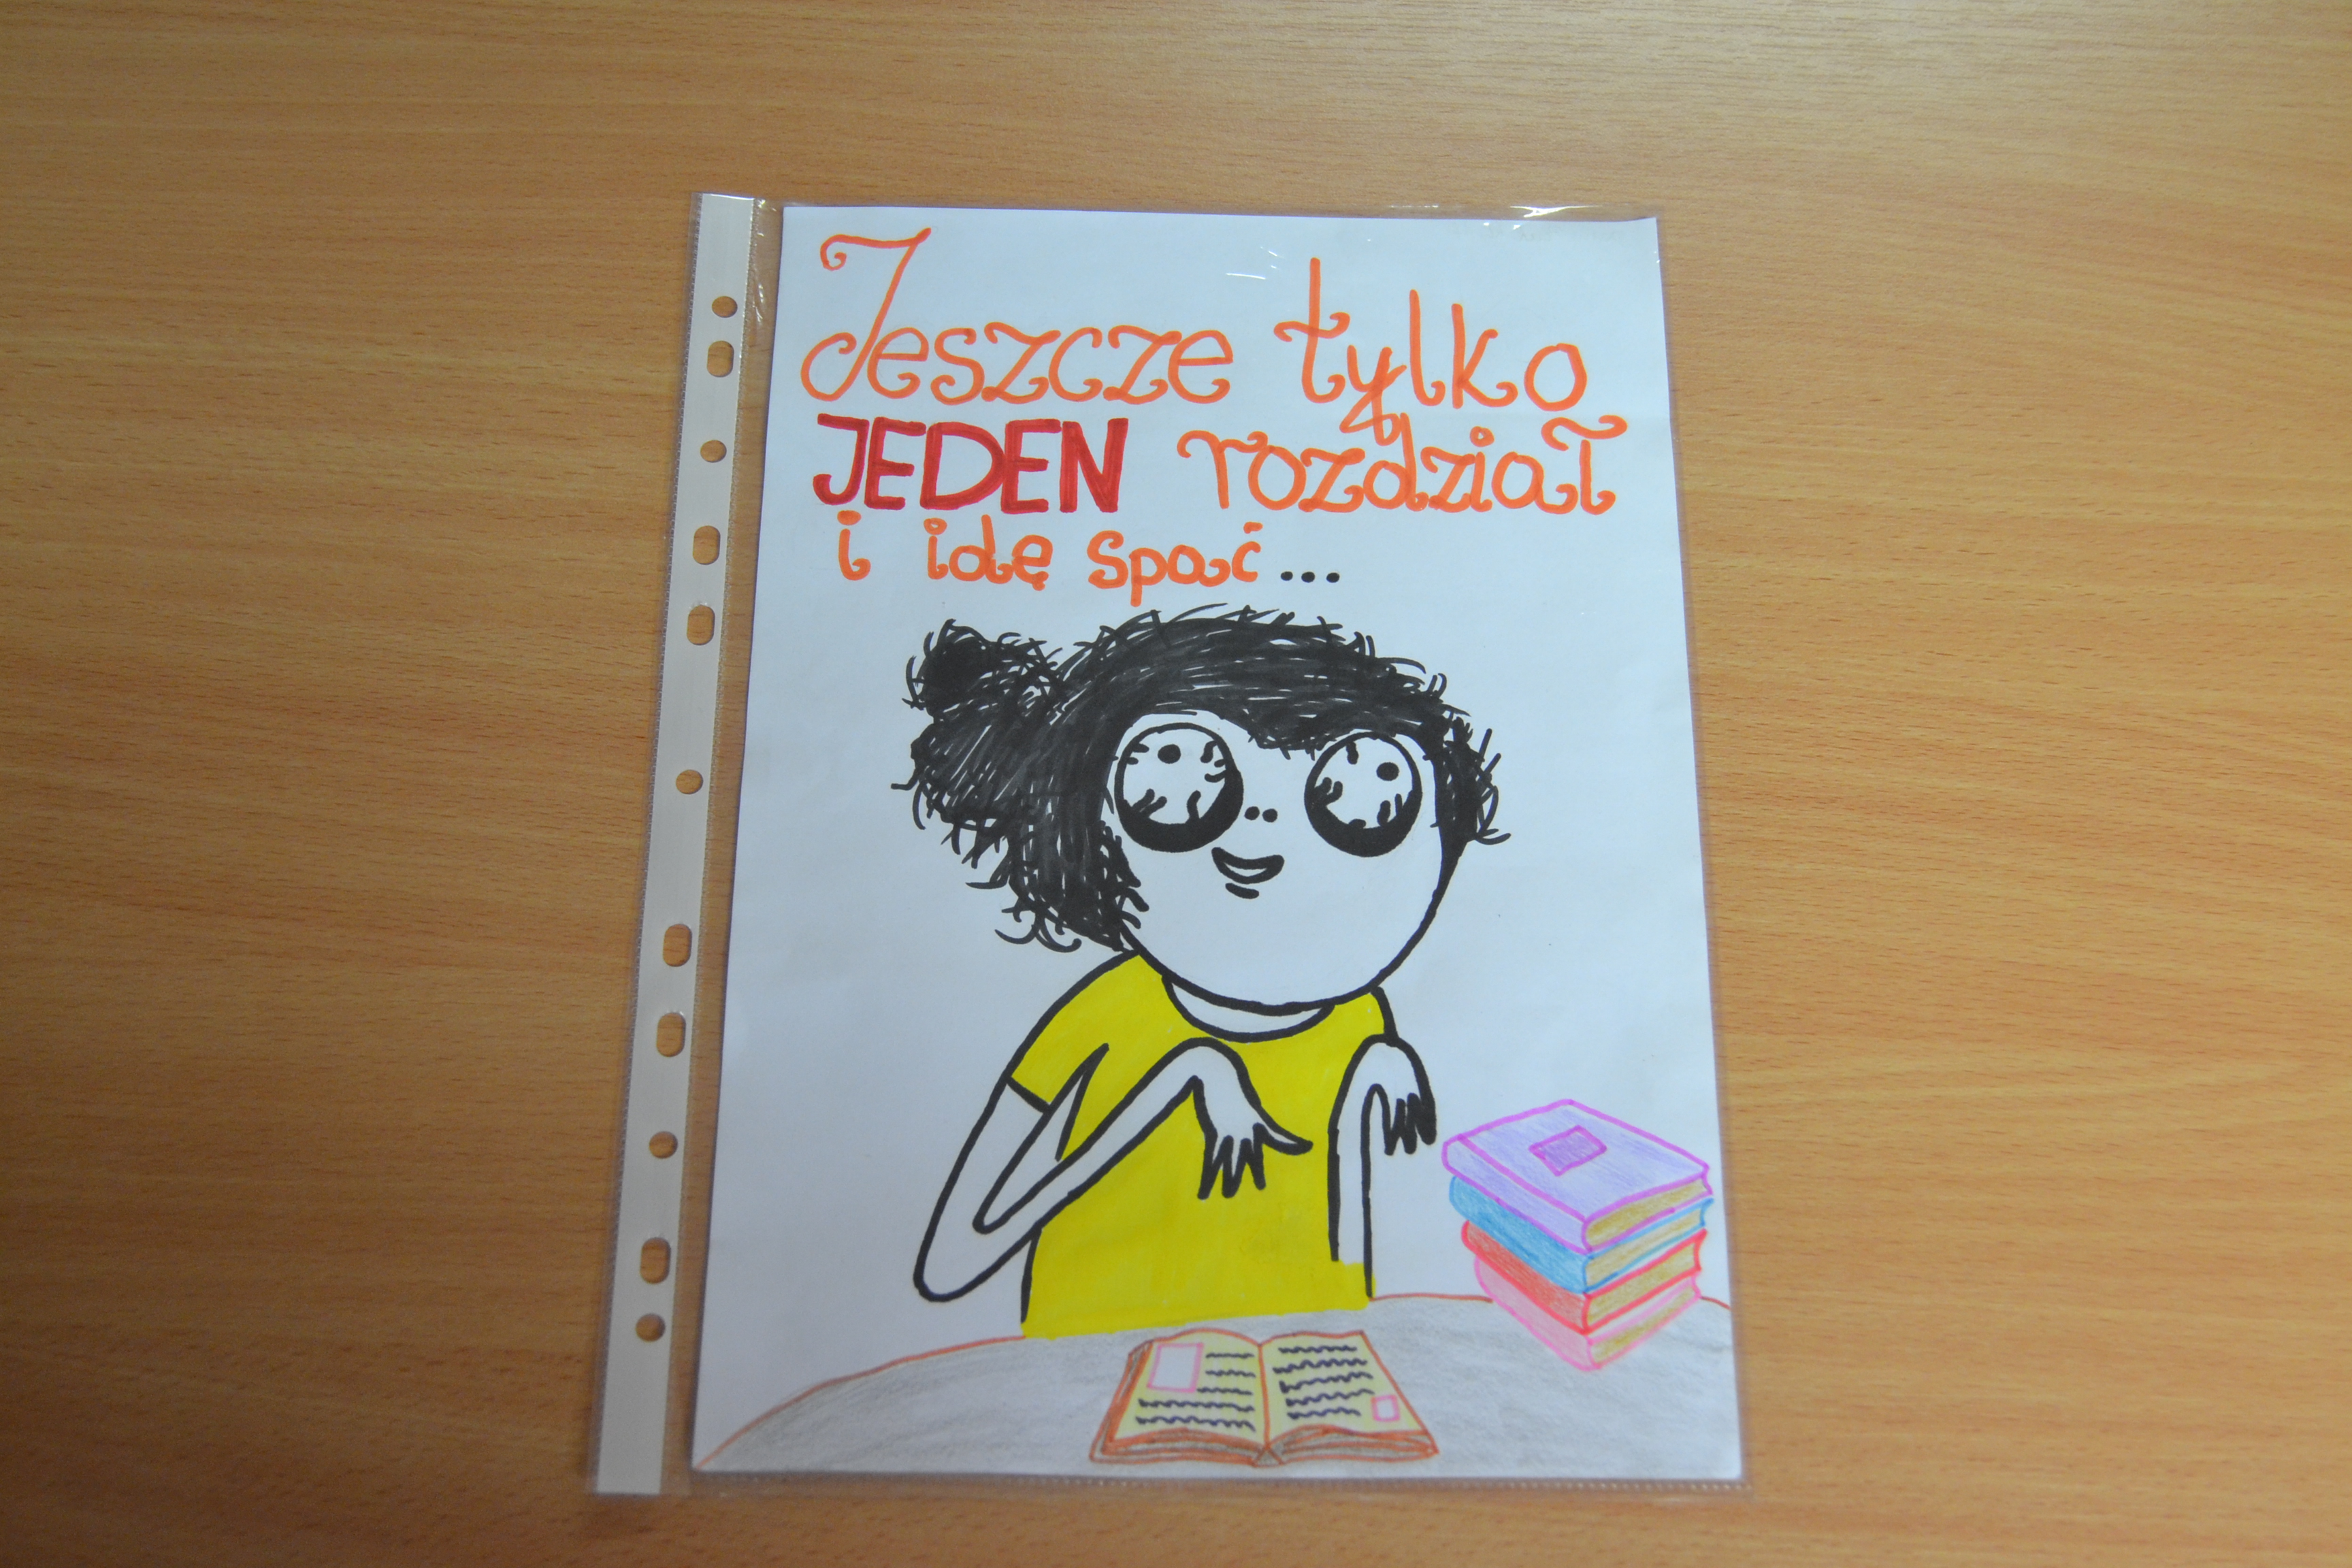 Jeszcze tylko
JEDEN rozdział
i idę spać...